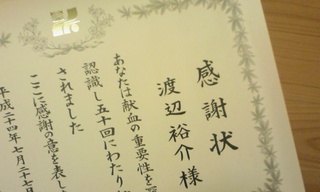 感謝状
渡辺裕介様
あなたは献血の重要性を
認識し五十回にわたり
されました
ここに感謝の意を表し
平成二十四年七月二十七